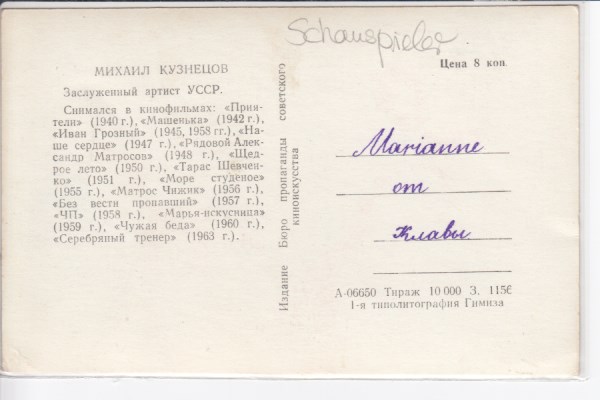 Schauspieler
МИХАИЛ КУЗНЕЦОВ
Заслуженный артист УССР.
Снимался в кинофильмах: «Прия-
тели» (1940 г.), «Машенька» (1942 г.),
«Иван Грозный» (1945, 1958 гг.), «На-
ше сердце» (1947 г.), «Рядовой Алек-
сандр Матросов» (1948 г.), «Щед-
рое лето» (1950 г.), «Тарас Шевчен-
ко» (1951 г.), «Море студеное»
(1955 г.), «Матрос Чижик» (1956 г.),
«Без вести пропавший» (1957 г.),
«ЧП» (1958 г.), «Марья-искусница»
(1959 г.), «Чужая беда» (1960 г.),
«Серебряный тренер» (1963 г.).
Издание Бюро пропаганды советского
киноискусства
Цена 8 коп.
Marianne
от
Клавы
А-06650 Тираж 10 000 З. 1156
1-я типолитография Гимиза